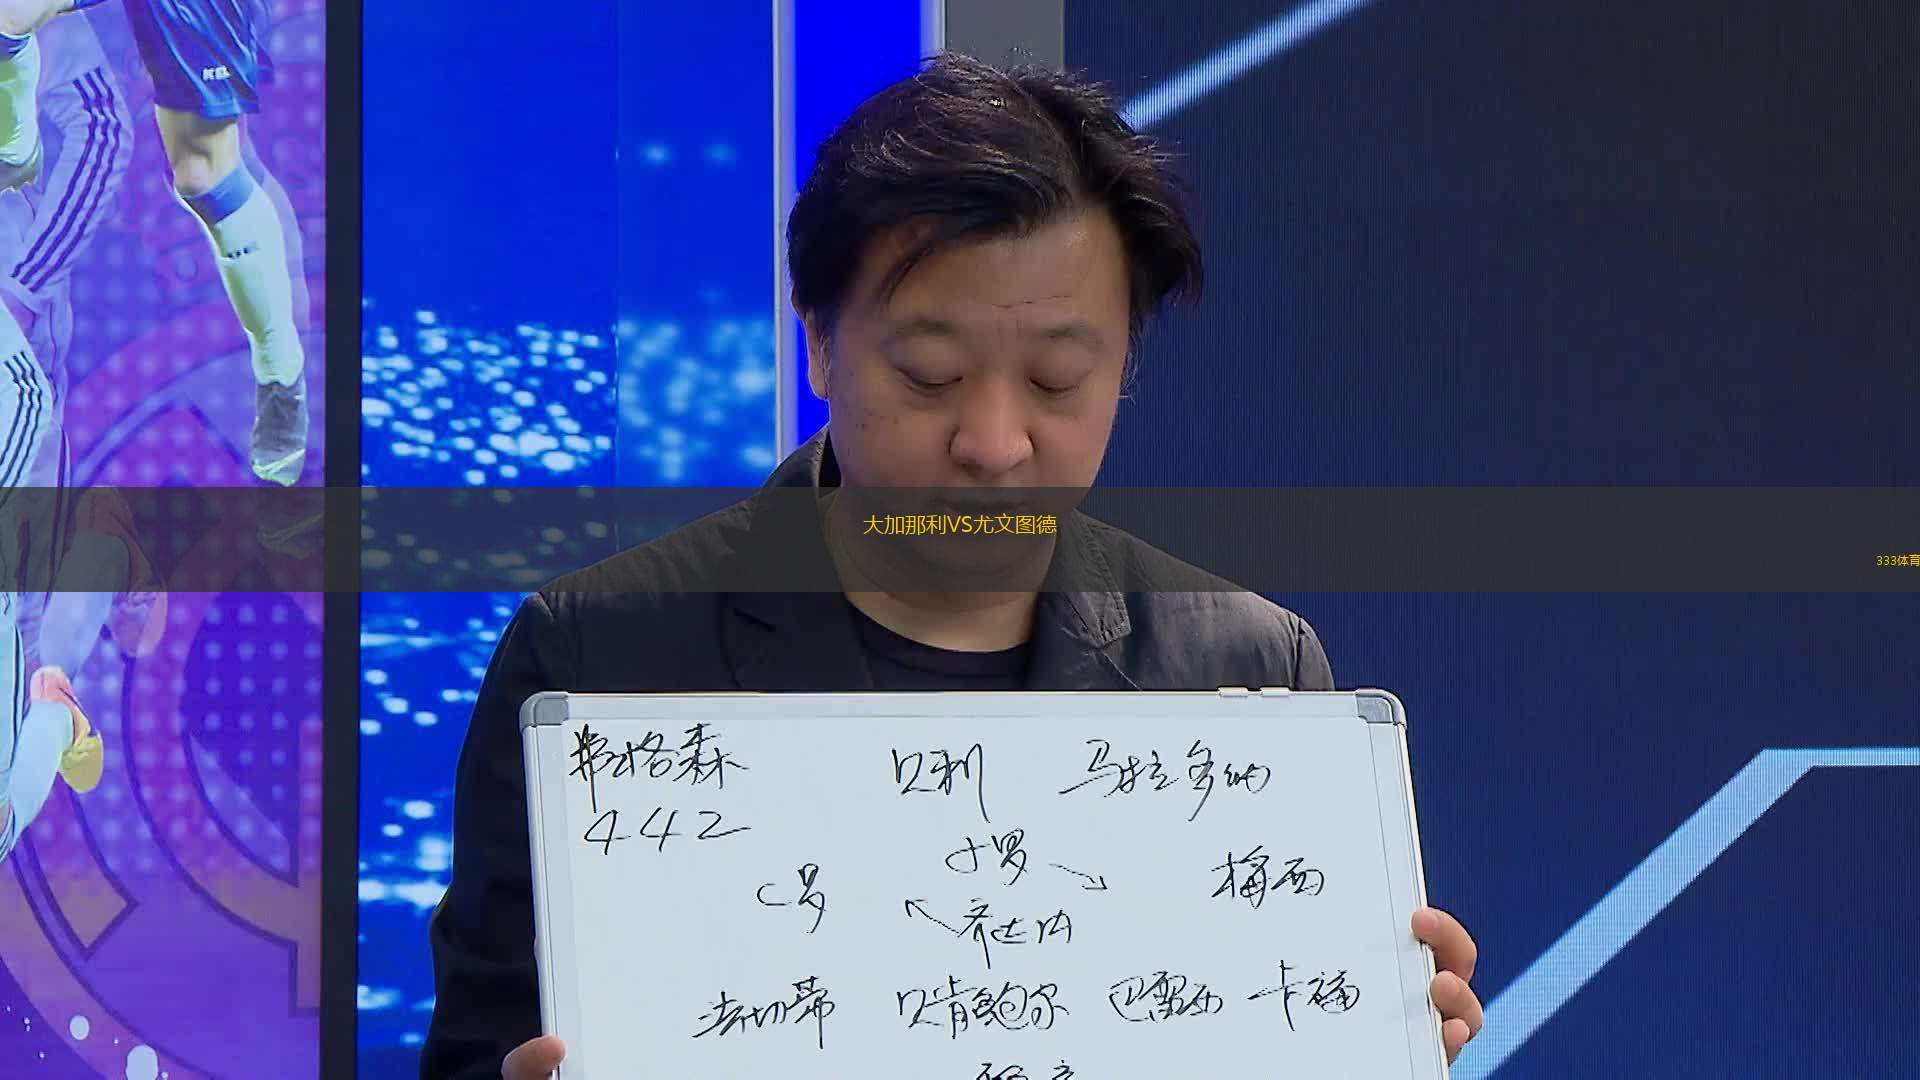 大加那利VS尤文图德
333体育
弗格森 贝利 马拉多纳
442
小罗
C罗 梅西
齐达内
法切蒂 贝肯鲍尔 巴雷西 卡福